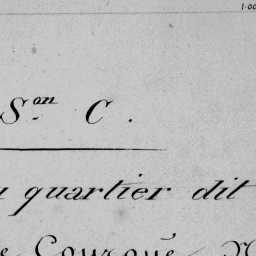 1.00
Son. C.
u quartier dit
e Courqué